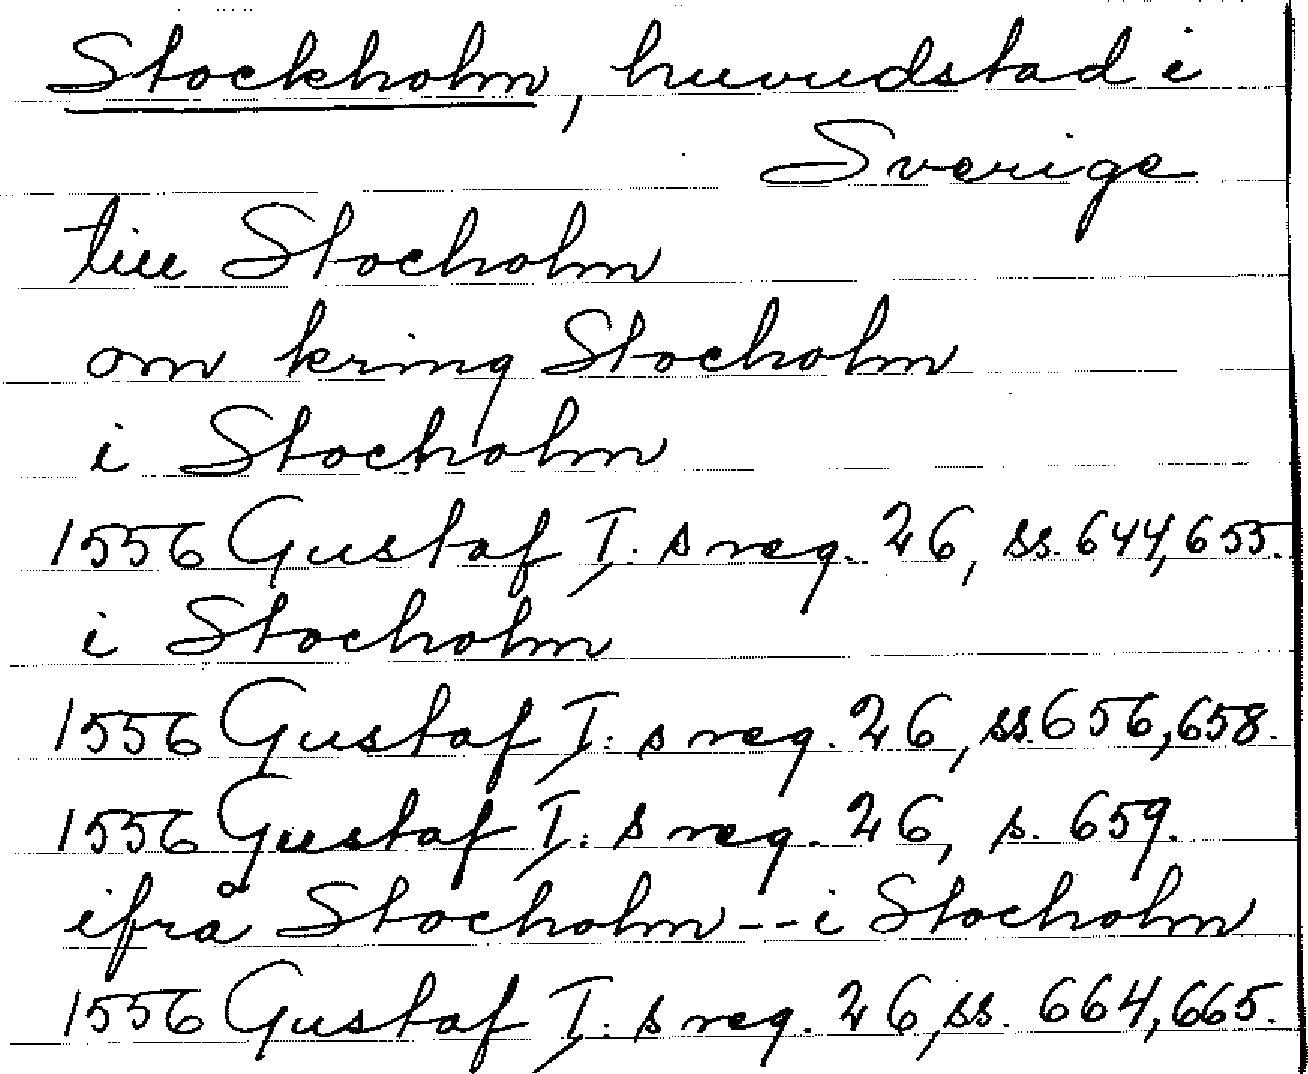 Stockholm, huvudstad i
Sverige
till Stocholm
om kring Stocholm
i Stocholm
1556 Gustaf I: s reg. 26, ss. 644, 655.
i Stocholm
1556 Gustaf I: s reg. 26, ss. 656, 658.
1556 Gustaf I: s reg. 26, s. 659.
ifrå Stocholm -- i Stocholm
1556 Gustaf I: s reg. 26, ss. 664, 665.